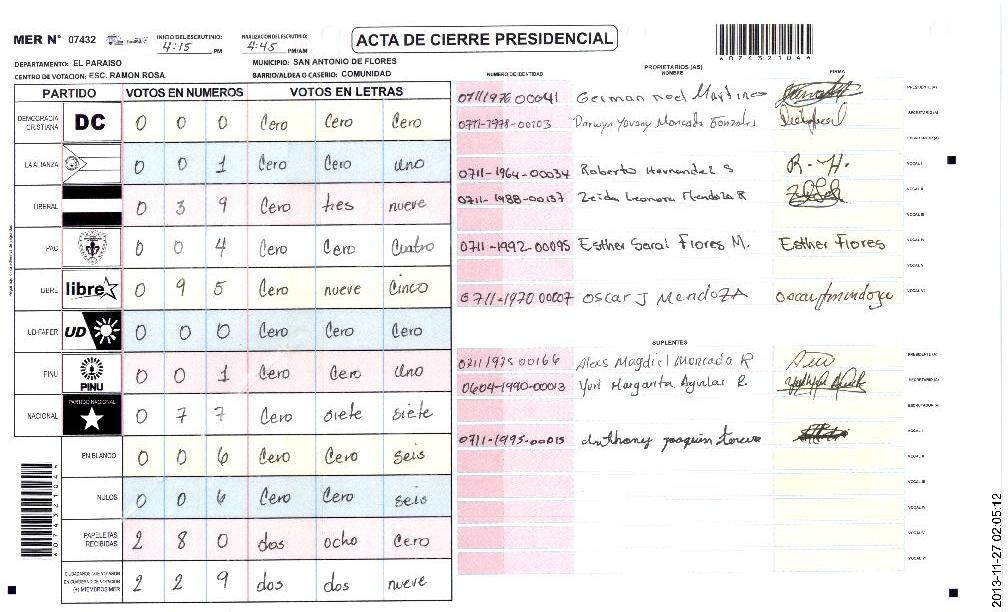 MER N° 07432
INICIO DEL ESCRUTINIO: 4:15 PM
FINALIZACION DEL ESCRUTINIO: 4:45 PM/AM
ACTA DE CIERRE PRESIDENCIAL
6074321046
DEPARTAMENTO: EL PARAISO
MUNICIPIO: SAN ANTONIO DE FLORES
CENTRO DE VOTACION: ESC. RAMON ROSA
BARRIO/ALDEA O CASERIO: COMUNIDAD
PARTIDO VOTOS EN NUMEROS VOTOS EN LETRAS
DEMOCRACIA CRISTIANA DC 0 0 0 Cero Cero Cero
LA ALIANZA 0 0 1 Cero Cero uno
LIBERAL 0 3 9 Cero tres nueve
PAC 0 0 4 Cero Cero Cuatro
LIBRE libre 0 9 5 Cero nueve Cinco
UD-FAPER UD 0 0 0 Cero Cero Cero
PINU PINU 0 0 1 Cero Cero Uno
NACIONAL PARTIDO NACIONAL 0 7 7 Cero siete siete
EN BLANCO 0 0 6 Cero Cero seis
NULOS 0 0 6 Cero Cero seis
PAPELETAS RECIBIDAS 2 8 0 dos ocho Cero
CIUDADANOS QUE VOTARON EN CUADERNO DE VOTACION (+) MIEMBROS MER 2 2 9 dos dos nueve
NUMERO DE IDENTIDAD
PROPIETARIOS (AS)
NOMBRE
FIRMA
0711197600041 German noel Martinez PRESIDENTE (A)
0711-1978-00103 Darwyn Yovany Moncada Gonzales SECRETARIO (A)
ESCRUTADOR (A)
0711-1964-00034 Roberto Hernandez S R.-H. VOCAL I
0711-1988-00137 Zeida Leonora Mendoza R VOCAL II
VOCAL III
0711-1992-00095 Esther Sarai Flores M. Esther Flores VOCAL IV
VOCAL V
0711-1970 00007 Oscar J Mendoza oscar j mendoza VOCAL VI
SUPLENTES
0711 1975 00166 Alexs Magdiel Moncada R PRESIDENTE (A)
0604-1990-00013 Yuri Margarita Aguilar R. SECRETARIO (A)
ESCRUTADOR (A)
0711-1995-00015 Anthony joaquin VOCAL I
VOCAL II
VOCAL III
VOCAL IV
VOCAL V
VOCAL VI
2013-11-27 02:05:12